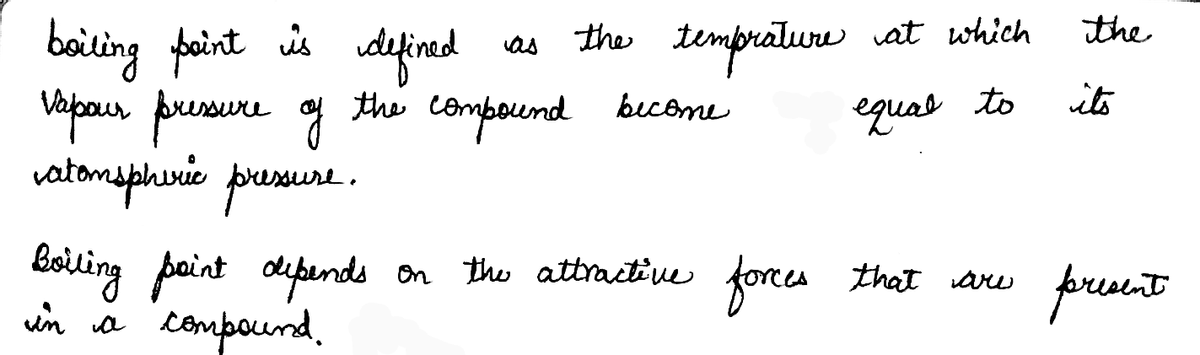 boiling point is defined as the temprature at which the
Vapour pressure of the compound become equal to its
atomspheric pressure.
Boiling point depends on the attractive forces that are present
in a compound.